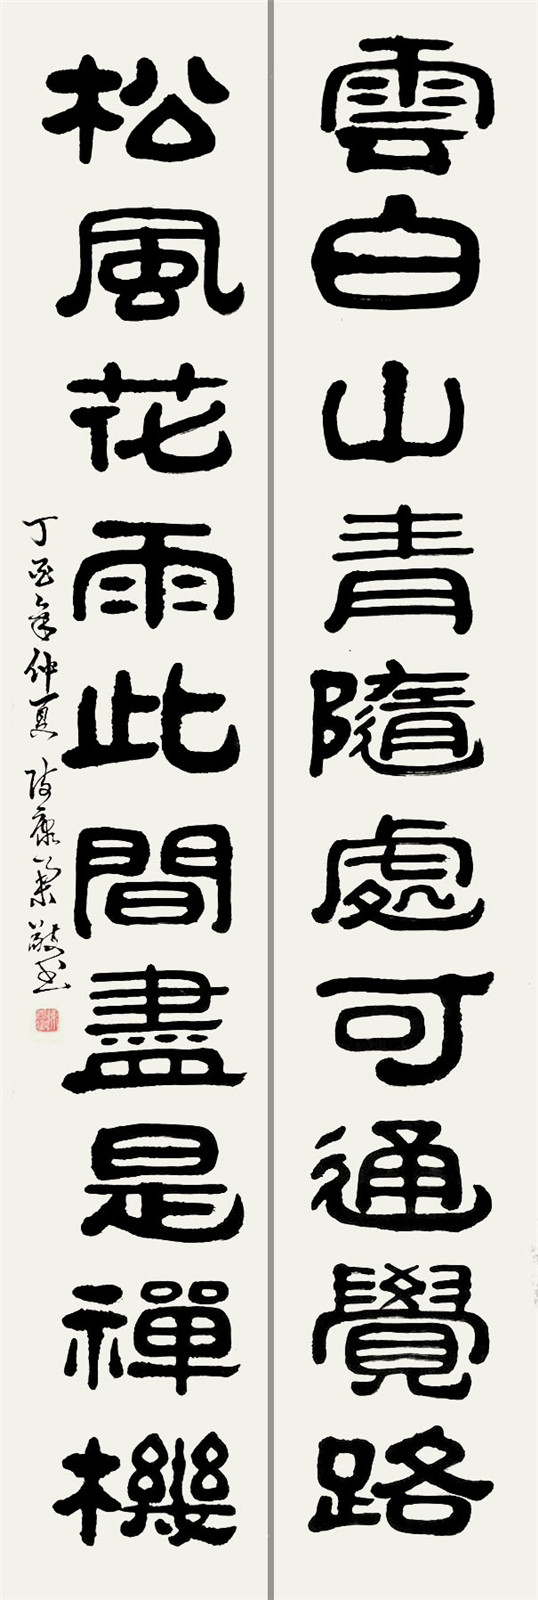 雲白山青隨處可通覺路
松風花雨此間盡是禪機
丁酉年仲夏陈康荣敬书